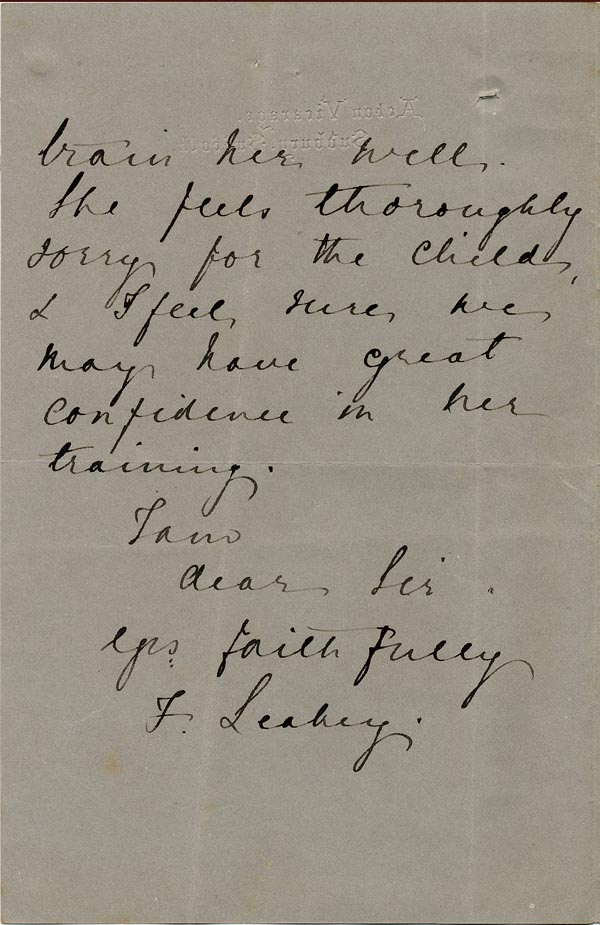 Acton Vicarage.
Sudbury. Suffolk.
train her well.
She feels thoroughly
sorry for the child,
& I feel sure we
may have great
confidence in her
training.
I am
dear Sir.
Yrs. faithfully
F. Leakey.